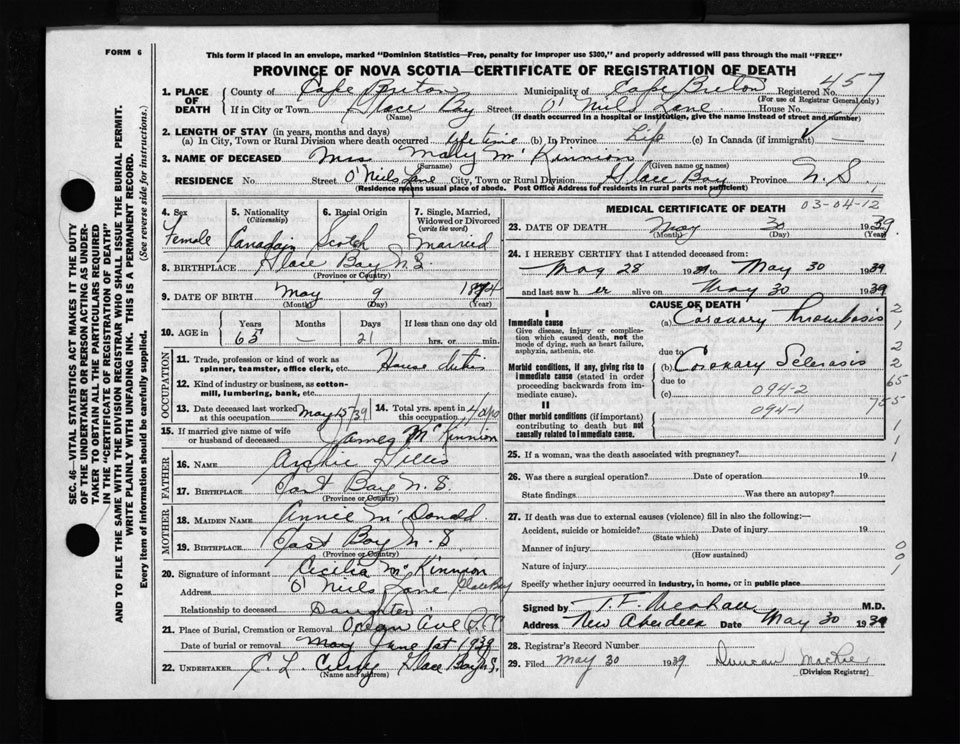 FORM 6
This form if placed in an envelope, marked "Dominion Statistics—Free, penalty for improper use $300," and properly addressed will pass through the mail "FREE"
PROVINCE OF NOVA SCOTIA—CERTIFICATE OF REGISTRATION OF DEATH
SEC. 46—VITAL STATISTICS ACT MAKES IT THE DUTY
OF THE UNDERTAKER OR PERSON ACTING AS UNDER-
TAKER TO OBTAIN ALL THE PARTICULARS REQUIRED
IN THE "CERTIFICATE OF REGISTRATION OF DEATH"
AND TO FILE THE SAME WITH THE DIVISION REGISTRAR WHO SHALL ISSUE THE BURIAL PERMIT.
WRITE PLAINLY WITH UNFADING INK. THIS IS A PERMANENT RECORD.
Every item of information should be carefully supplied. (See reverse side for instructions.)
1. PLACE OF DEATH County of Cape Breton Municipality of Cape Breton Registered No. 457
(For use of Registrar General only)
If in City or Town Glace Bay Street O'Niels Lane House No.
(Name) (If death occurred in a hospital or institution, give the name instead of street and number)
2. LENGTH OF STAY (in years, months and days)
(a) In City, Town or Rural Division where death occurred life time (b) In Province Life (c) In Canada (if immigrant) —
3. NAME OF DECEASED Mrs Mary McKinnion
(Surname) (Given name or names)
RESIDENCE No Street O'Niels Lane City, Town or Rural Division Glace Bay Province N.S.
(Residence means usual place of abode. Post Office Address for residents in rural parts not sufficient)
4. Sex 5. Nationality (Citizenship) 6. Racial Origin 7. Single, Married, Widowed or Divorced (write the word)
Female Canadain Scotch Married
8. BIRTHPLACE Glace Bay N.S
(Province or Country)
9. DATE OF BIRTH May 9 1874
(Month) (Day) (Year)
10. AGE in Years Months Days If less than one day old
65 — 21 hrs. or min.
OCCUPATION
11. Trade, profession or kind of work as spinner, teamster, office clerk, etc. House duties
12. Kind of industry or business, as cotton-mill, lumbering, bank, etc.
13. Date deceased last worked at this occupation. May 15/39 14. Total yrs. spent in this occupation.
15. If married give name of wife or husband of deceased James McKinnion
FATHER
16. NAME Archie Gillis
17. BIRTHPLACE East Bay N.S.
(Province or Country)
MOTHER
18. MAIDEN NAME Annie McDonald
19. BIRTHPLACE East Bay N.S
(Province or Country)
20. Signature of informant Cecilia McKinnion
Address O'Niels Lane Glace Bay
Relationship to deceased Daughter
21. Place of Burial, Cremation or Removal Ocean Ave
Date of burial or removal May June 1st 1939
22. UNDERTAKER C. L. Glace Bay N.S.
(Name and address)
MEDICAL CERTIFICATE OF DEATH 03-04-12
23. DATE OF DEATH May 30 1939.
(Month) (Day) (Year)
24. I HEREBY CERTIFY that I attended deceased from:
May 28 1939 to May 30 1939
and last saw her alive on May 30 1939
CAUSE OF DEATH
I
Immediate cause
Give disease, injury or complication which caused death, not the mode of dying, such as heart failure, asphyxia, asthenia, etc.
(a) Coronary Thrombosis
due to
Morbid conditions, if any, giving rise to immediate cause (stated in order proceeding backwards from immediate cause).
(b) Coronary Sclerosis
due to
(c) 094-2
II
094-1
Other morbid conditions (if important) contributing to death but not causally related to immediate cause.
2
1
2
2
65
765
1
1
1
25. If a woman, was the death associated with pregnancy?
26. Was there a surgical operation? Date of operation 19
State findings Was there an autopsy?
27. If death was due to external causes (violence) fill in also the following:—
Accident, suicide or homicide? Date of injury 19
(State which)
Manner of injury
(How sustained)
Nature of injury
0
0
1
Specify whether injury occurred in industry, in home, or in public place
Signed by T. F. Meahan M.D.
Address New Aberdeen Date May 30 1939
28. Registrar's Record Number
29. Filed May 30 1939 Duncan MacRae
(Division Registrar)